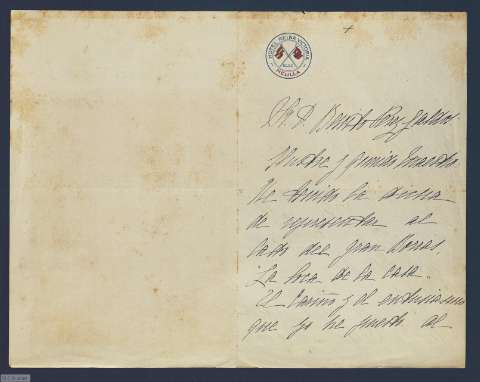 HOTEL REINA VICTORIA
MELILLA
Sr. D. Benito Pérez Galdós
Ilustre y querido Maestro
He tenido la dicha
de representar al
lado del gran Borras,
La loca de la casa.
El cariño y el entusiasmo
que yo he puesto al